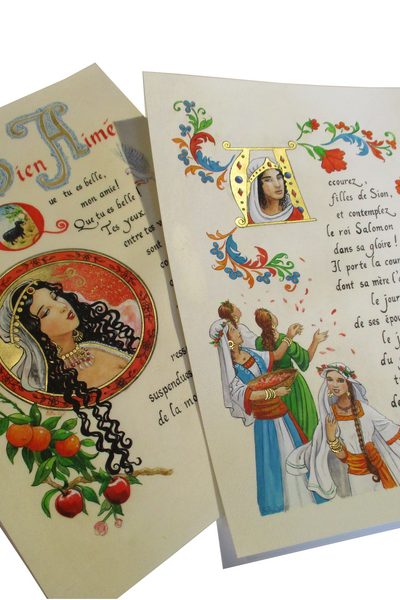 Bien Aimé
Que tu es belle,
mon amie!
Que tu es belle
Tes yeux
entre tes
sont
ress
suspendues
de la mo
Accourez,
filles de Sion,
et contemplez
le roi Salomon
dans sa gloire !
Il porte la cour
dont sa mère l'
le jour
de ses épou
le j
d
de